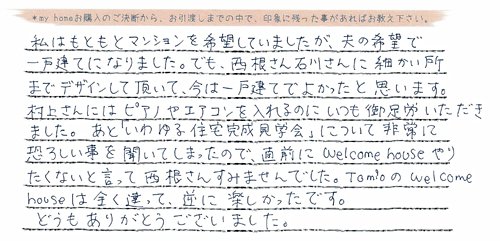 *my homeお購入のご決断から、お引渡しまでの中で、印象に残った事があればお教え下さい。
私はもともとマンションを希望していましたが、夫の希望で
一戸建てになりました。でも、西根さん石川さんに細かい所
までデザインして頂いて、今は一戸建てでよかったと思います。
村上さんにはピアノやエアコンを入れるのにいつも御足労いただき
ました。あと「いわゆる住宅完成見学会」について非常に
恐ろしい事を聞いてしまったので、直前にWelcome houseやり
たくないと言って西根さんすみませんでした。Tomioのwelcome
houseは全く違って、逆に楽しかったです。
どうもありがとうございました。